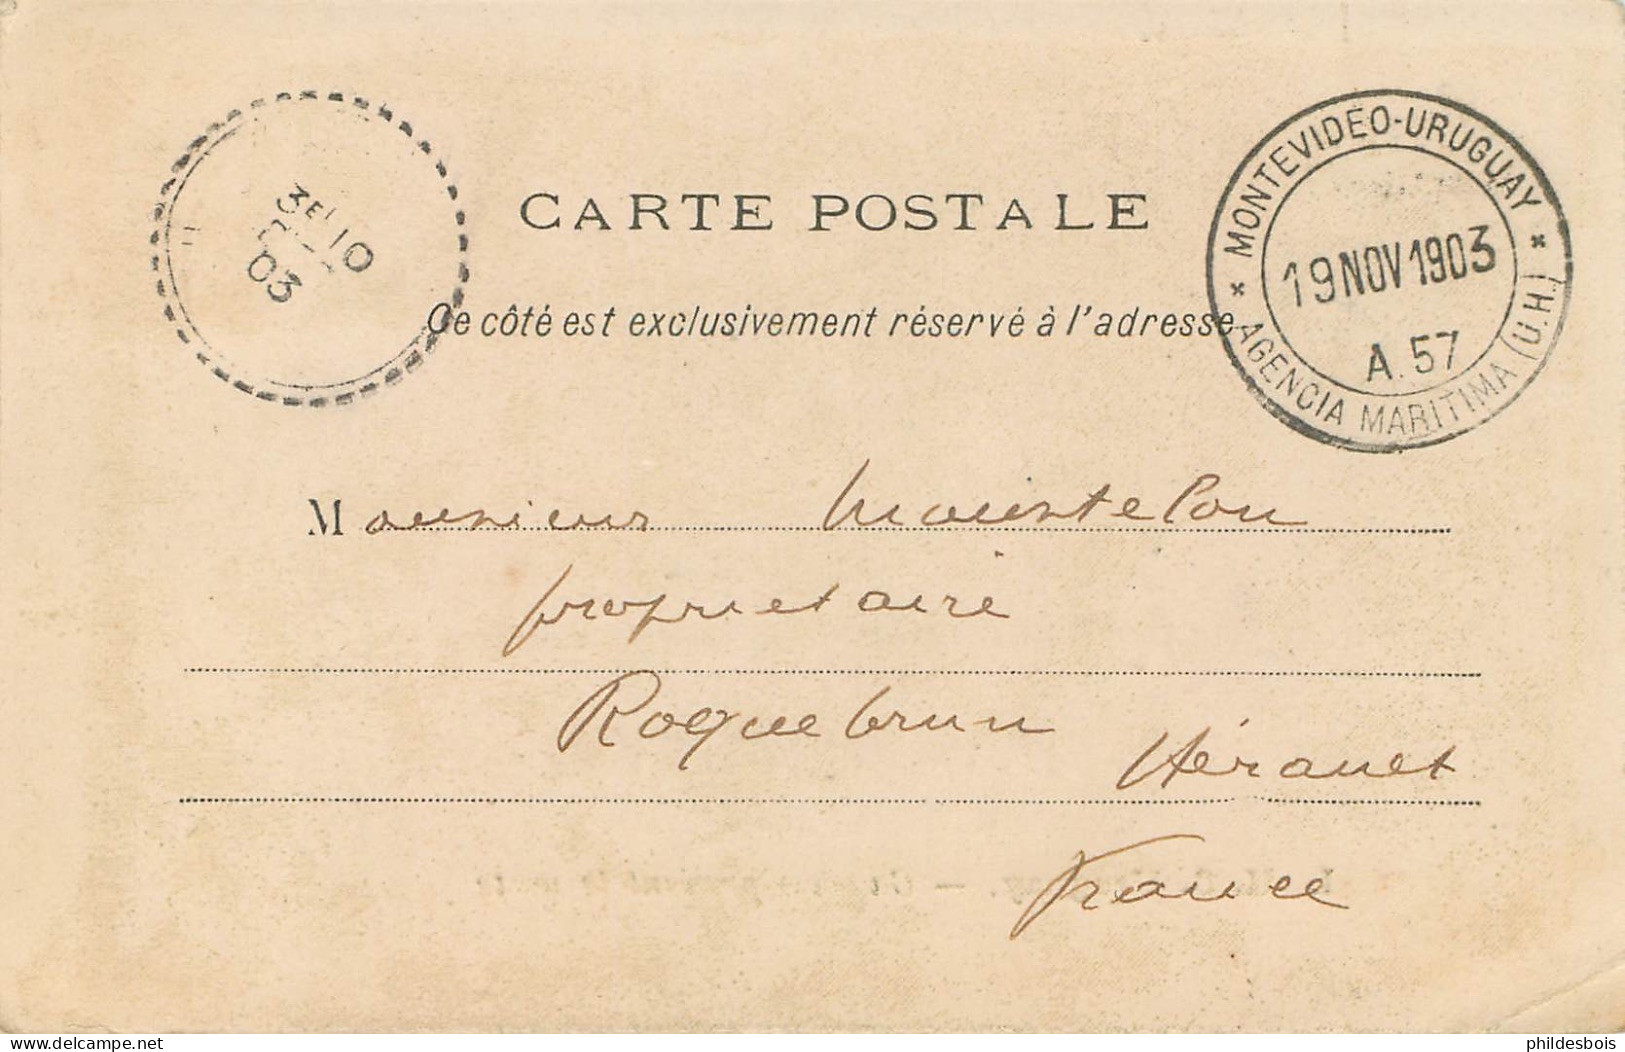 CARTE POSTALE
Ce côté est exclusivement réservé à l'adresse
MONTEVIDEO-URUGUAY
19 NOV 1903
A. 57
AGENCIA MARITIMA (U.H.)
3E/10
03
Monsieur
propriétaire
Roquebrun Hérault
France
www.delcampe.net
phildesbois